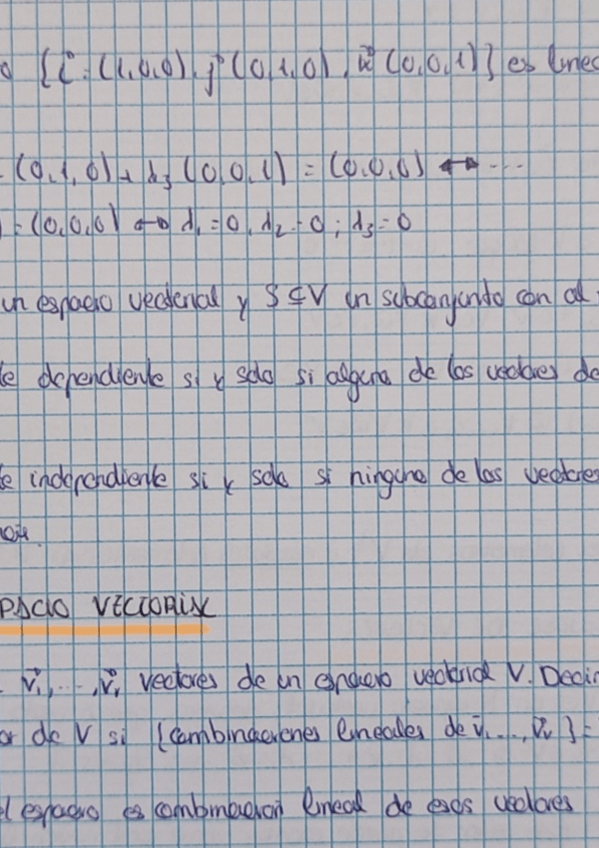 {i⃗ = (1,0,0), j⃗ (0,1,0), k⃗ (0,0,1)} es linea
(0,1,0) + λ₃ (0,0,1) = (0,0,0) ↔ ...
= (0,0,0) ↔ λ₁ = 0, λ₂ = 0; λ₃ = 0
un espacio vectorial y S ⊆ V un subconjunto con al
te dependiente si y solo si alguno de los vectores de
te independiente si y solo si ninguno de los vectores
PACIO VECTORIAL
v⃗₁, ..., v⃗ᵣ vectores de un espacio vectorial V. Decir
or de V si {combinaciones lineales de v⃗₁, ..., v⃗ᵣ} =
el espacio es combinación lineal de esos vectores